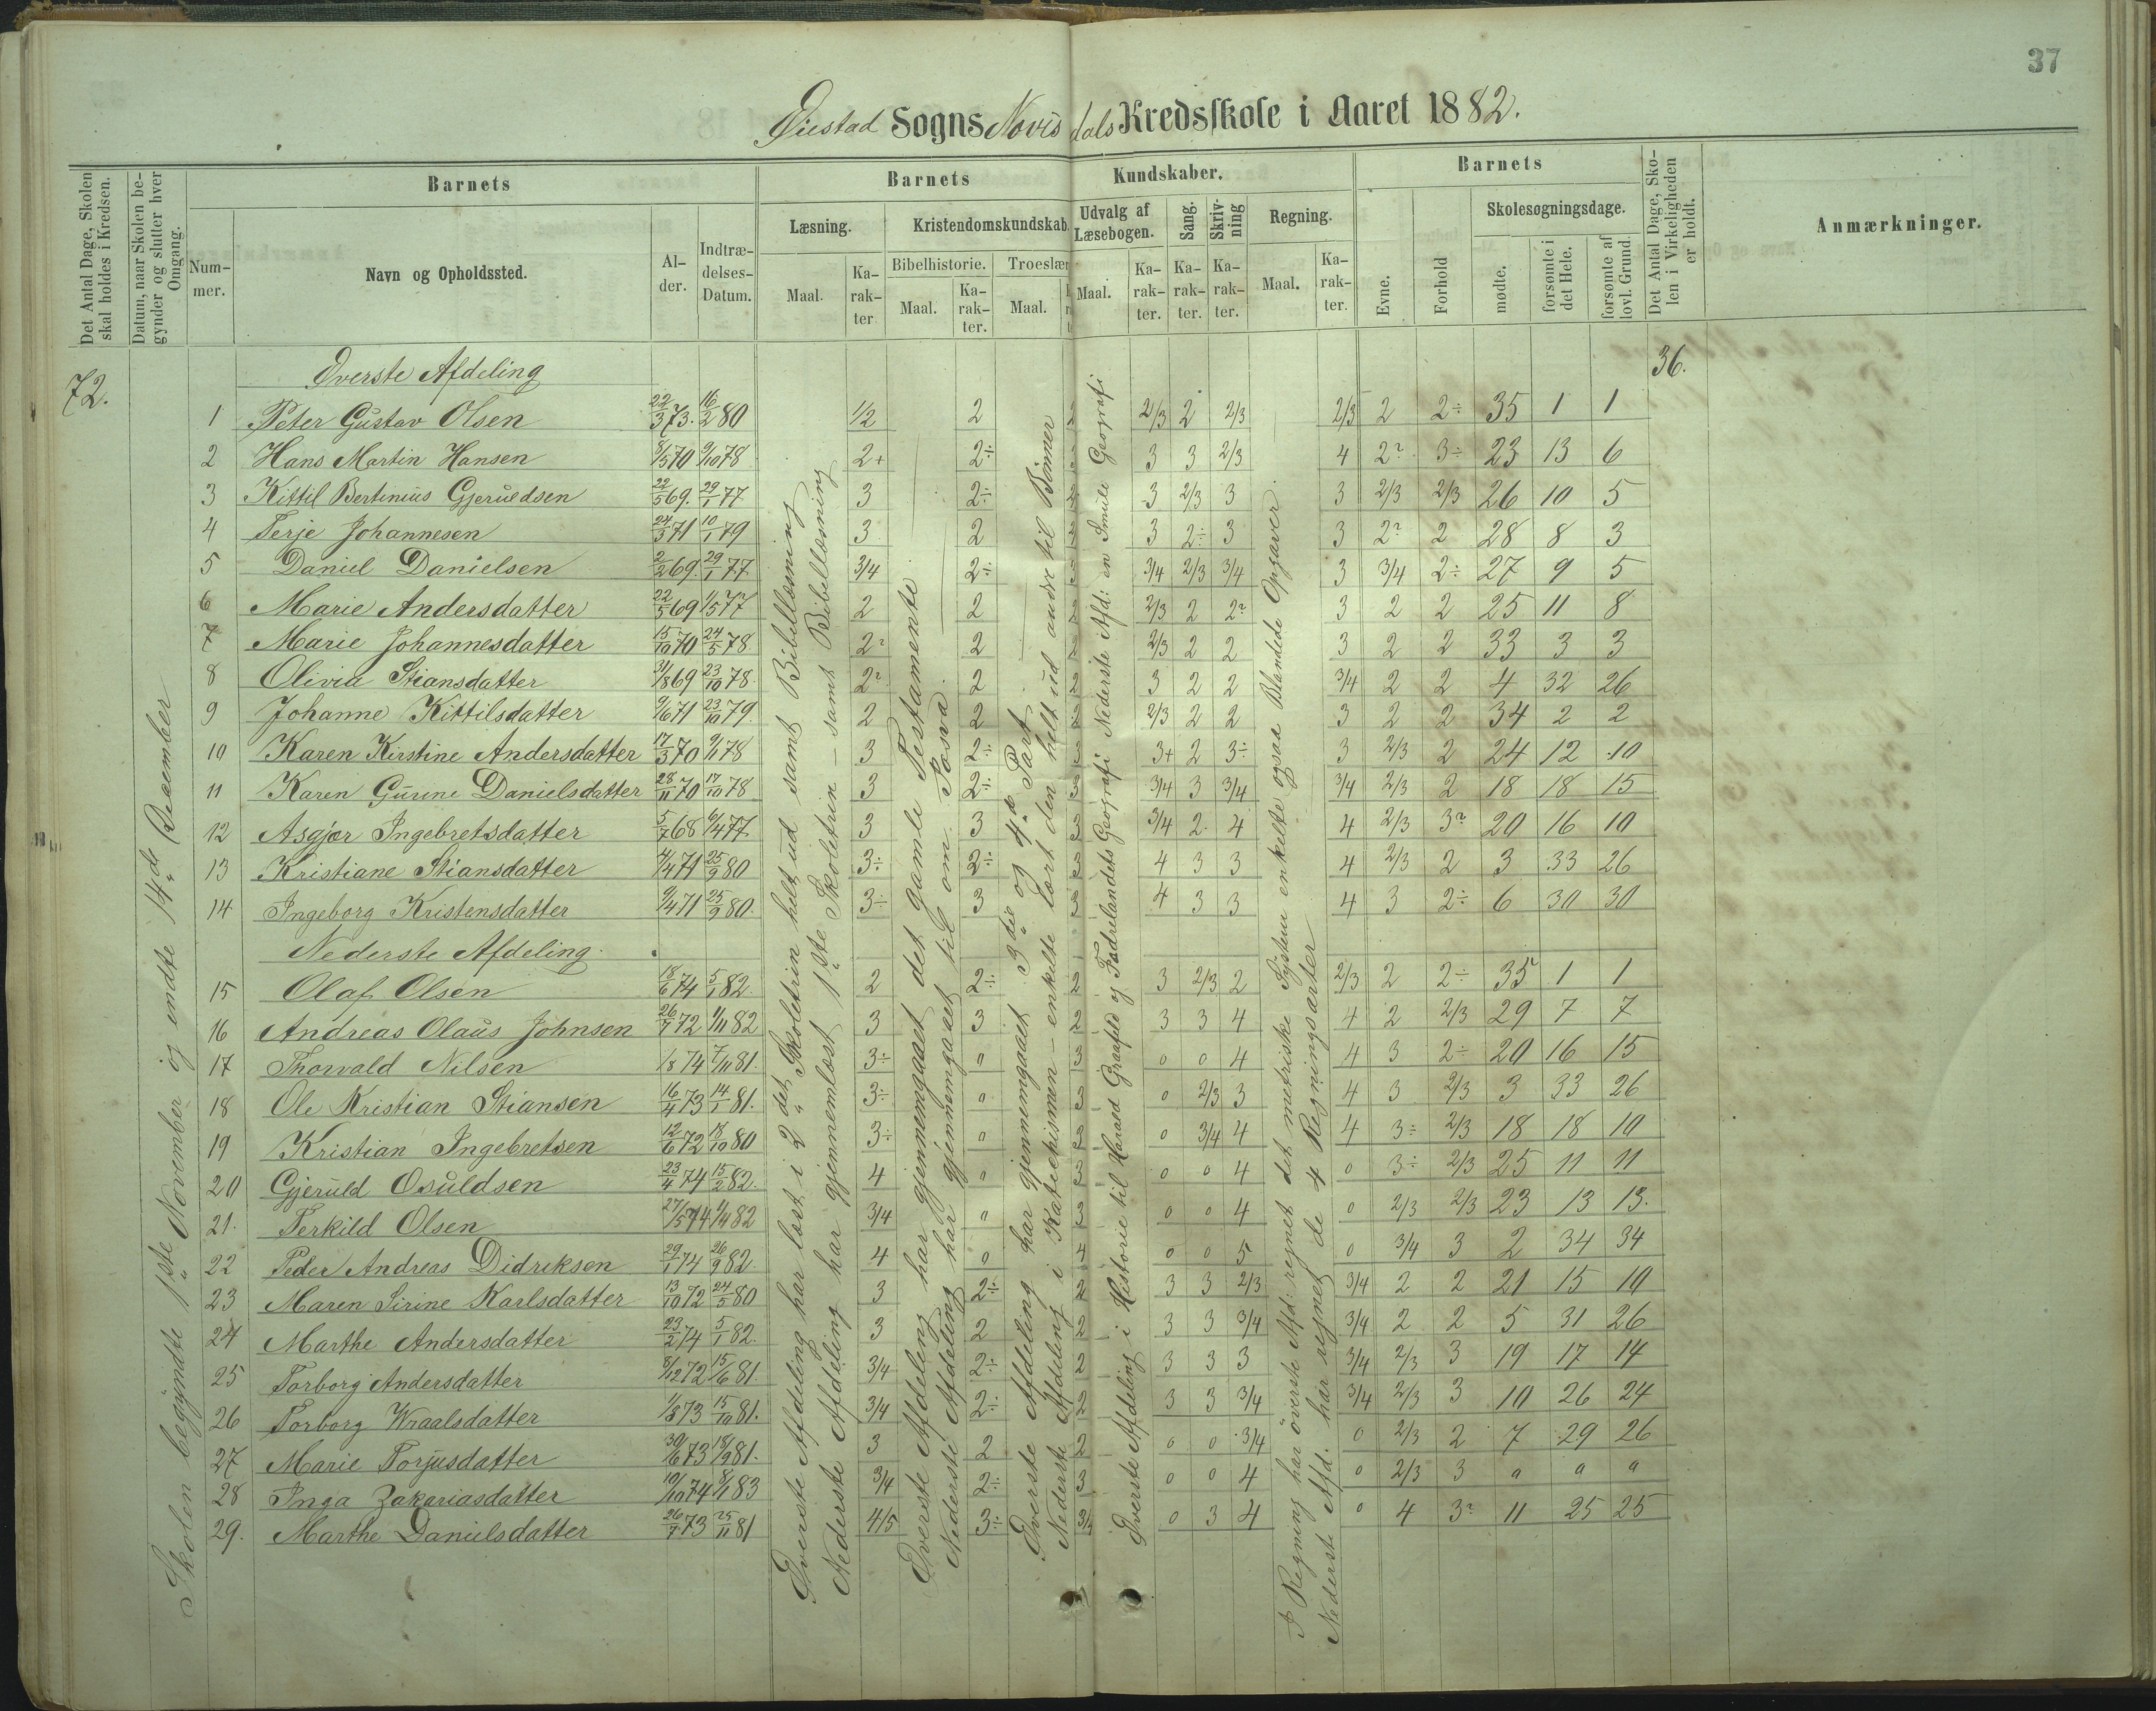 37
Øiestad Sogns Novisdals Kredsskole i Aaret 1882.
Det Antal Dage, Skolen skal holdes i Kredsen.
Datum, naar Skolen begynder og slutter hver Omgang.
Barnets
Nummer.
Navn og Opholdssted.
Alder.
Indtrædelses-Datum.
Barnets Kundskaber.
Læsning.
Maal.
Karakter
Kristendomskundskab.
Bibelhistorie.
Maal.
Karakter.
Troeslær
Maal.
Udvalg af Læsebogen.
Maal.
Karakter.
Sang.
Karakter.
Skrivning
Karakter.
Regning.
Maal.
Karakter.
Barnets
Evne.
Forhold
Skolesøgningsdage.
mødte.
forsømte i det Hele.
forsømte af lovl. Grund.
Det Antal Dage, Skolen i Virkeligheden er holdt.
Anmærkninger.
72.
36.
Skolen begyndte 1ste November og endte 14de December
Øverste Afdeling
1 Peter Gustav Olsen 22/3 73. 16/2 80 1/2 2 2 2/3 2 2/3 2/3 2 2÷ 35 1 1
2 Hans Martin Hansen 8/5 70 9/10 78 2+ 2÷ 3 3 2/3 4 2? 3÷ 23 13 6
3 Kittil Bertinius Gjeruldsen 22/5 69. 29/1 77 3 2÷ 2 3 2/3 3 3 2/3 2/3 26 10 5
4 Terje Johannesen 24/3 71 10/1 79 3 2 3 2÷ 3 3 2? 2 28 8 3
5 Daniel Danielsen 2/2 69. 29/1 77 3/4 2÷ 3/4 2/3 3/4 3 3/4 2÷ 27 9 5
6 Marie Andersdatter 22/5 69 1/5 77 2 2 2 2/3 2 2? 3 2 2 25 11 8
7 Marie Johannesdatter 15/10 70 24/5 78 2? 2 2 2/3 2 2 3 2 2 33 3 3
8 Olivia Stiansdatter 31/8 69 23/10 78 2? 2 2 3 2 2 3/4 2 2 4 32 26
9 Johanne Kittilsdatter 9/6 71 23/10 79. 2 2 2 2/3 2 2 3 2 2 34 2 2
10 Karen Kirstine Andersdatter 17/3 70 9/11 78 3 2÷ 3+ 2 3÷ 3 2/3 2 24 12 10
11 Karen Gurine Danielsdatter 28/11 70 17/10 78 3 2÷ 3 3/4 3 3/4 3/4 2/3 2 18 18 15
12 Asgjær Ingebretsdatter 5/7 68 6/4 77 3 3 3 3/4 2 4 4 2/3 3? 20 16 10
13 Kristiane Stiansdatter 4/4 71 25/9 80 3÷ 2÷ 3 4 3 3 4 2/3 2 3 33 26
14 Ingeborg Kristensdatter 9/4 71 25/9 80. 3÷ 3 3 4 3 3 4 3 2÷ 6 30 30
Nederste Afdeling.
15 Olaf Olsen 18/6 74 5/1 82. 2 2÷ 2 3 2/3 2 2/3 2 2÷ 35 1 1
16 Andreas Olaus Johnsen 26/7 72 1/11 82 3 3 2 3 3 4 4 2 2/3 29 7 7
17 Thorvald Nilsen 1/8 74 7/11 81. 3÷ 0 3 0 0 4 4 3 2÷ 20 16 15
18 Ole Kristian Stiansen 16/4 73 14/1 81. 3÷ 0 3 0 2/3 3 4 3 2/3 3 33 26
19 Kristian Ingebretsen 12/6 72 18/10 80 3÷ 0 3 0 3/4 4 4 3÷ 2/3 18 18 10
20 Gjeruld Osuldsen 23/4 74 15/2 82. 4 0 3 0 0 4 0 3÷ 2/3 25 11 11
21. Terkild Olsen 27/5 74 9/4 82 3/4 0 3 0 0 4 0 2/3 2/3 23 13 13.
22 Peder Andreas Didriksen 29/1 74 26/9 82 4 0 4 0 0 5 0 3/4 3 2 34 34
23 Maren Sirine Karlsdatter 13/10 72 24/5 80 3 2÷ 2 3 3 2/3 3/4 2 2 21 15 10
24 Marthe Andersdatter 23/2 74 5/1 82. 3 2 2 3 3 3/4 3/4 2 2 5 31 26
25 Torborg Andersdatter 8/12 72 15/6 81. 3/4 2÷ 2 3 3 3 3/4 2/3 3 19 17 14
26 Torborg Wraalsdatter 1/8 73 15/10 81. 3/4 2÷ 2 3 3 3/4 3/4 2/3 3 10 26 24
27 Marie Torjusdatter 30/6 73 18/9 81. 3 2 2 0 0 3/4 0 2/3 2 7 29 26
28 Inga Zakariasdatter 10/10 74 8/1 83 3/4 2÷ 3 0 0 4 0 2/3 3 " " "
29. Marthe Danielsdatter 26/7 73 25/11 81 4/5 3÷ 3/4 0 3 4 0 4 3? 11 25 25
Øverste Afdeling har læst i 2det Skoletrin helt ud samt Bibellæsning
Nederste Afdeling har gjennemlæst 1ste Skoletrin – samt Bibellæsning
Øverste Afdeling har gjennemgaaet det gamle Testamente
Nederste Afdeling har gjennemgaaet til om Josva.
Øverste Afdeling har gjennemgaaet 3die og 4de Part
Nederste Afdeling i Katechismen – enkelte lært den helt ud andre til Bønner
Øverste Afdeling i Historie til Harald Graafeld og Fædrelandets Geografi Nederste Afd: en Smule Geografi
I Regning har øverste Afd: regnet det metriske System enkelte ogsaa Blandede Opgaver.
Nederst Afd. har regnet de 4 Regningsarter